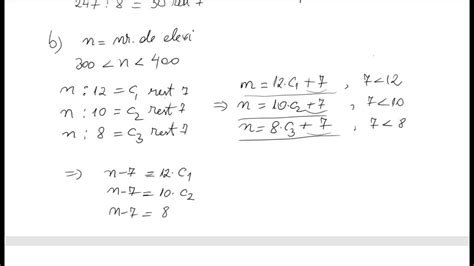 247 : 8 = 30 rest 7
b) n = nr. de elevi
300 < n < 400
n : 12 = c₁ rest 7
n : 10 = c₂ rest 7
n : 8 = c₃ rest 7
⇒ n = 12·c₁ + 7 , 7 < 12
n = 10·c₂ + 7 , 7 < 10
n = 8·c₃ + 7 , 7 < 8
⇒ n-7 = 12·c₁
n-7 = 10·c₂
n-7 = 8